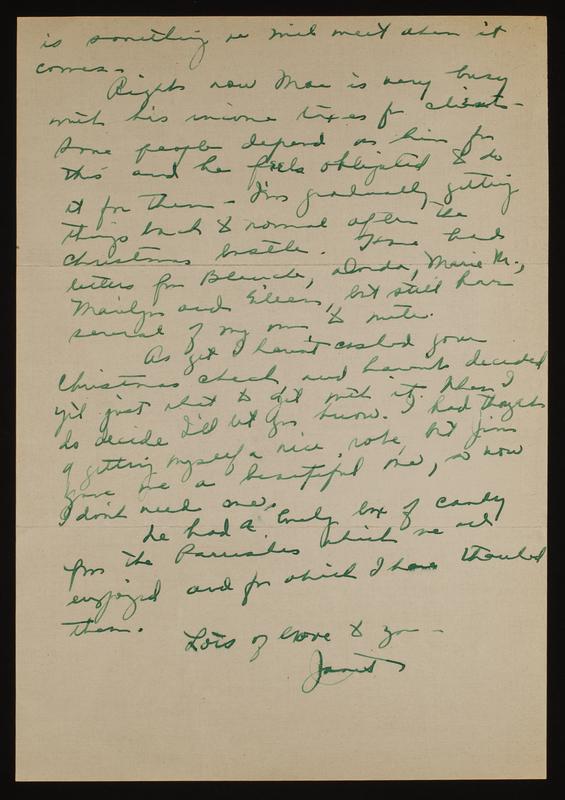 is something we will meet when it
comes.
Right now Mac is very busy
with his income taxes for clients -
Some people depend on him for
this and he feels obligated to do
it for them - I'm gradually getting
things back to normal after the
Christmas bustle. Have had
letters from Blanche, Marie M.,
Marilyn and Eileen, but still have
several of my own to write.
As yet I haven't cashed your
Christmas check and haven't decided
yet just what to get with it. When I
do decide I'll let you know. I had thought
of getting myself a nice robe, but Jim
gave me a beautiful one, so now
I don't need one.
We had a lovely box of candy
from the Parrishes which we all
enjoyed and for which I have thanked
them.
Lots of love to you -
Janet